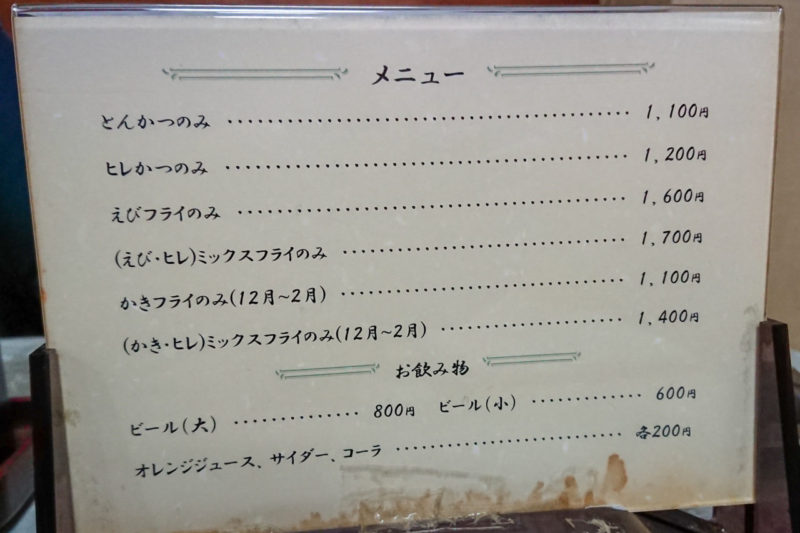 メニュー
とんかつのみ ……………………………… 1,100円
ヒレかつのみ ……………………………… 1,200円
えびフライのみ ……………………………… 1,600円
(えび・ヒレ)ミックスフライのみ ……………………… 1,700円
かきフライのみ(12月~2月) ……………………… 1,100円
(かき・ヒレ)ミックスフライのみ(12月~2月) ……………… 1,400円
お飲み物
ビール(大) ………… 800円 ビール(小) ………… 600円
オレンジジュース、サイダー、コーラ ……………… 各200円